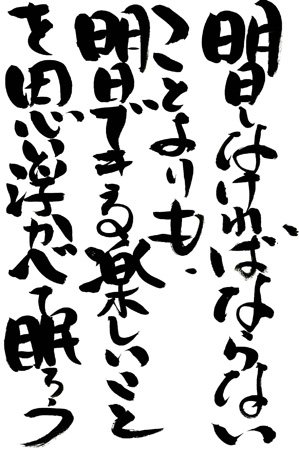 明日しなければならない
ことよりも、
明日できる楽しいこと
を思い浮かべて眠ろう